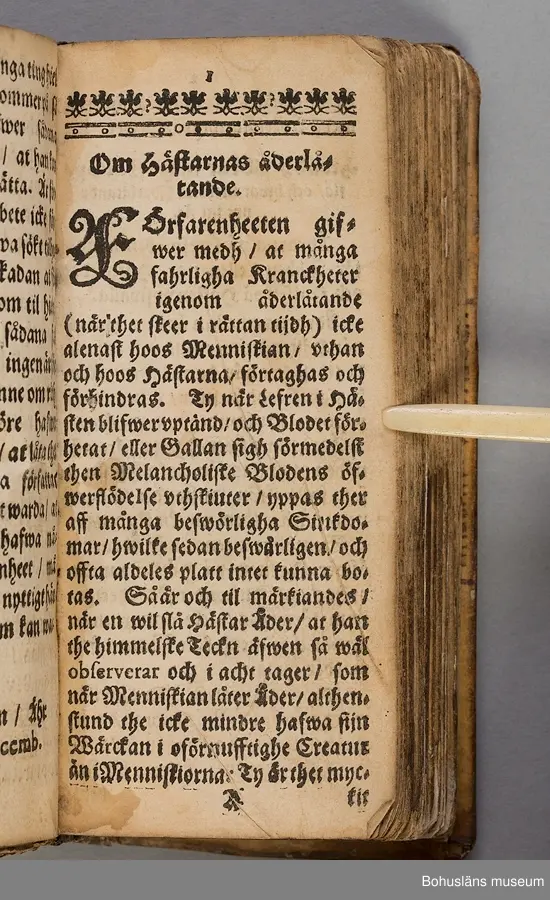 nga ting
ommer
wer sådana
/ at han
ätta.
bete icke
wa sökt
kadan
om til
sådana
ingen
nne om
öre hafwa
/ at låta
a författat
t warda /
hafwa
nheet /
nyttigt
m kan
n / Åhr
cemb.
1
Om Hästarnas åderlå-
tande.
AF Örfarenheeten gif-
wer medh / at många
fahrligha Kranckheter
igenom åderlåtande
(när thet skeer i rättan tijdh) icke
alenast hoos Menniskian / vthan
och hoos Hästarna / förtaghas och
förhindras. Ty när Lefren i Hä-
sten blifwer vptänd / och Blodet för-
hetat / eller Gallan sigh förmedelst
then Melancholiske Blodens öf-
werflödelse vthskiuter / yppas ther
aff många beswörligha Siukdo-
mar / hwilke sedan beswärligen / och
offta aldeles platt intet kunna bo-
tas. Så är och til märkiandes /
när en wil slå Hästar Åder / at han
the himmelske Teckn äfwen så wäl
observerar och i acht tager / som
när Menniskian låter Åder / althen-
stund the icke mindre hafwa sijn
Wärckan i oförnufftighe Creatur
än i Menniskiorna: Ty är thet myc-
A
kit
Bohusläns museum